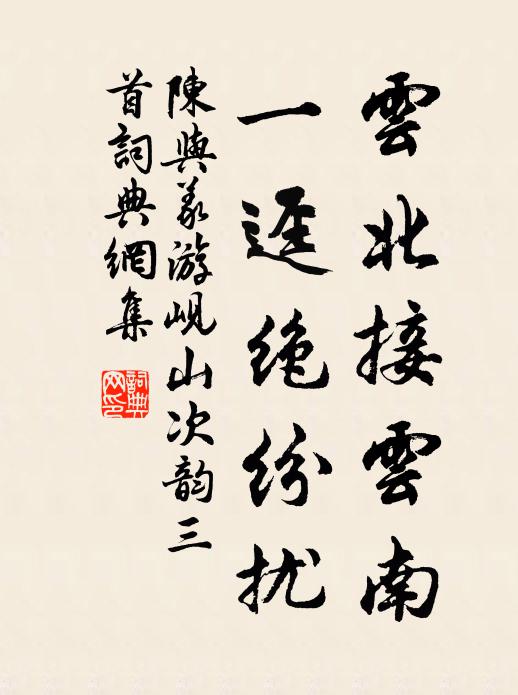 雲北接雲南
一逕絕紛扰
陳與义游峴山次韵三
首詞典網集
詞典
网印